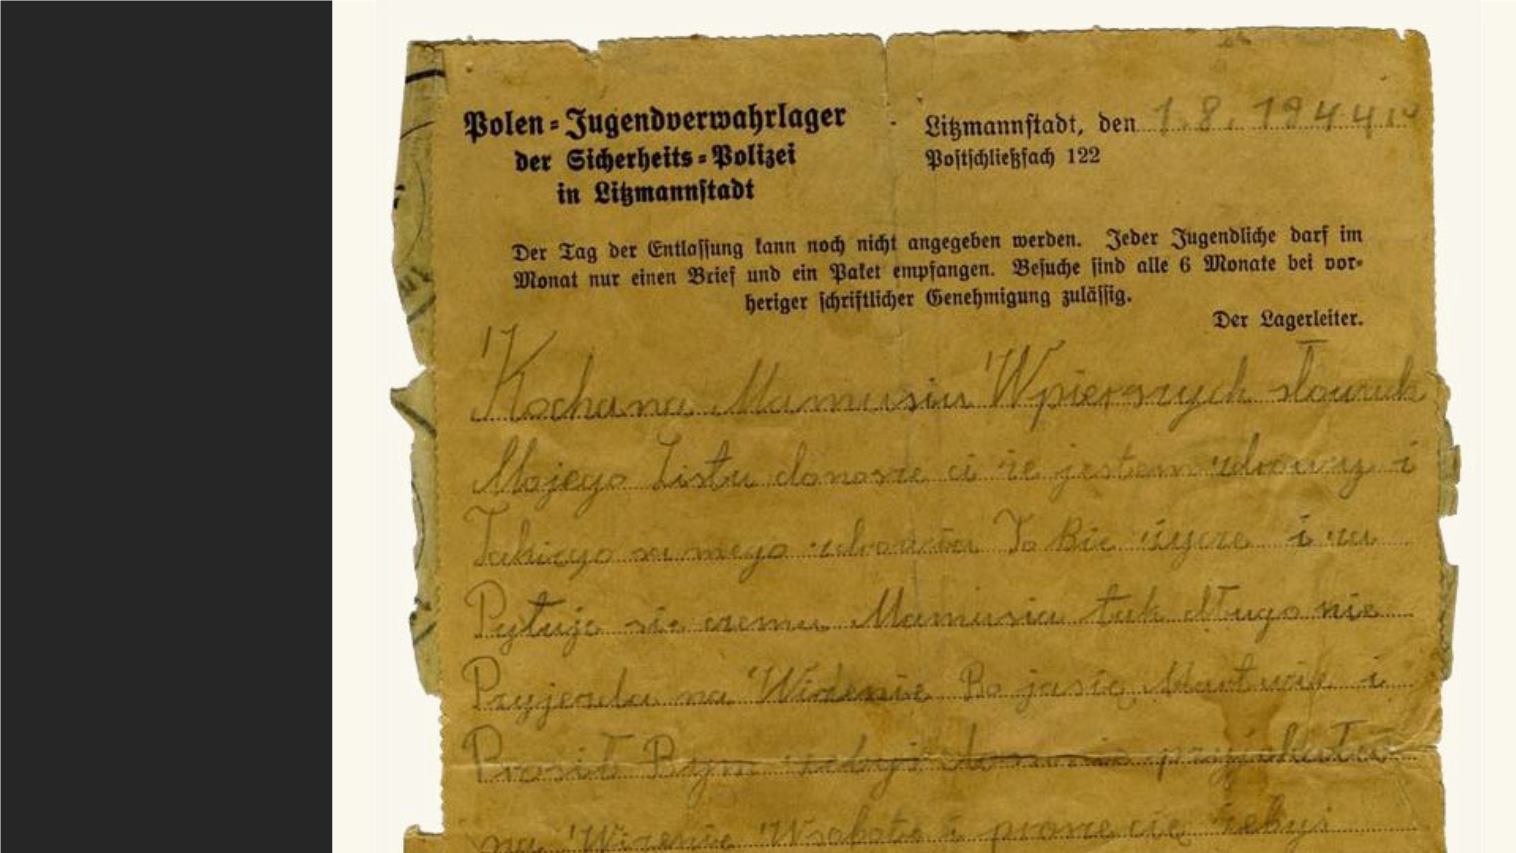 Polen-Jugendverwahrlager
der Sicherheits-Polizei
in Litzmannstadt
Litzmannstadt, den 1.8.1944 r
Postschließfach 122
Der Tag der Entlassung kann noch nicht angegeben werden. Jeder Jugendliche darf im
Monat nur einen Brief und ein Paket empfangen. Besuche sind alle 6 Monate bei vor-
heriger schriftlicher Genehmigung zulässig.
Der Lagerleiter.
Kochana Mamusiu Wpierszych słowach
Mojego Listu donosze ci że jestem zdrowy i
Takiego samego zdrowia To Bie życze i za
Pytuje sie czemu Mamusia tak długo nie
Pszyjezda na Widzenie Bo jasię Martwie i
Prosił Bym żebyś przyjechała
na W sobote i prosze cię żebyś